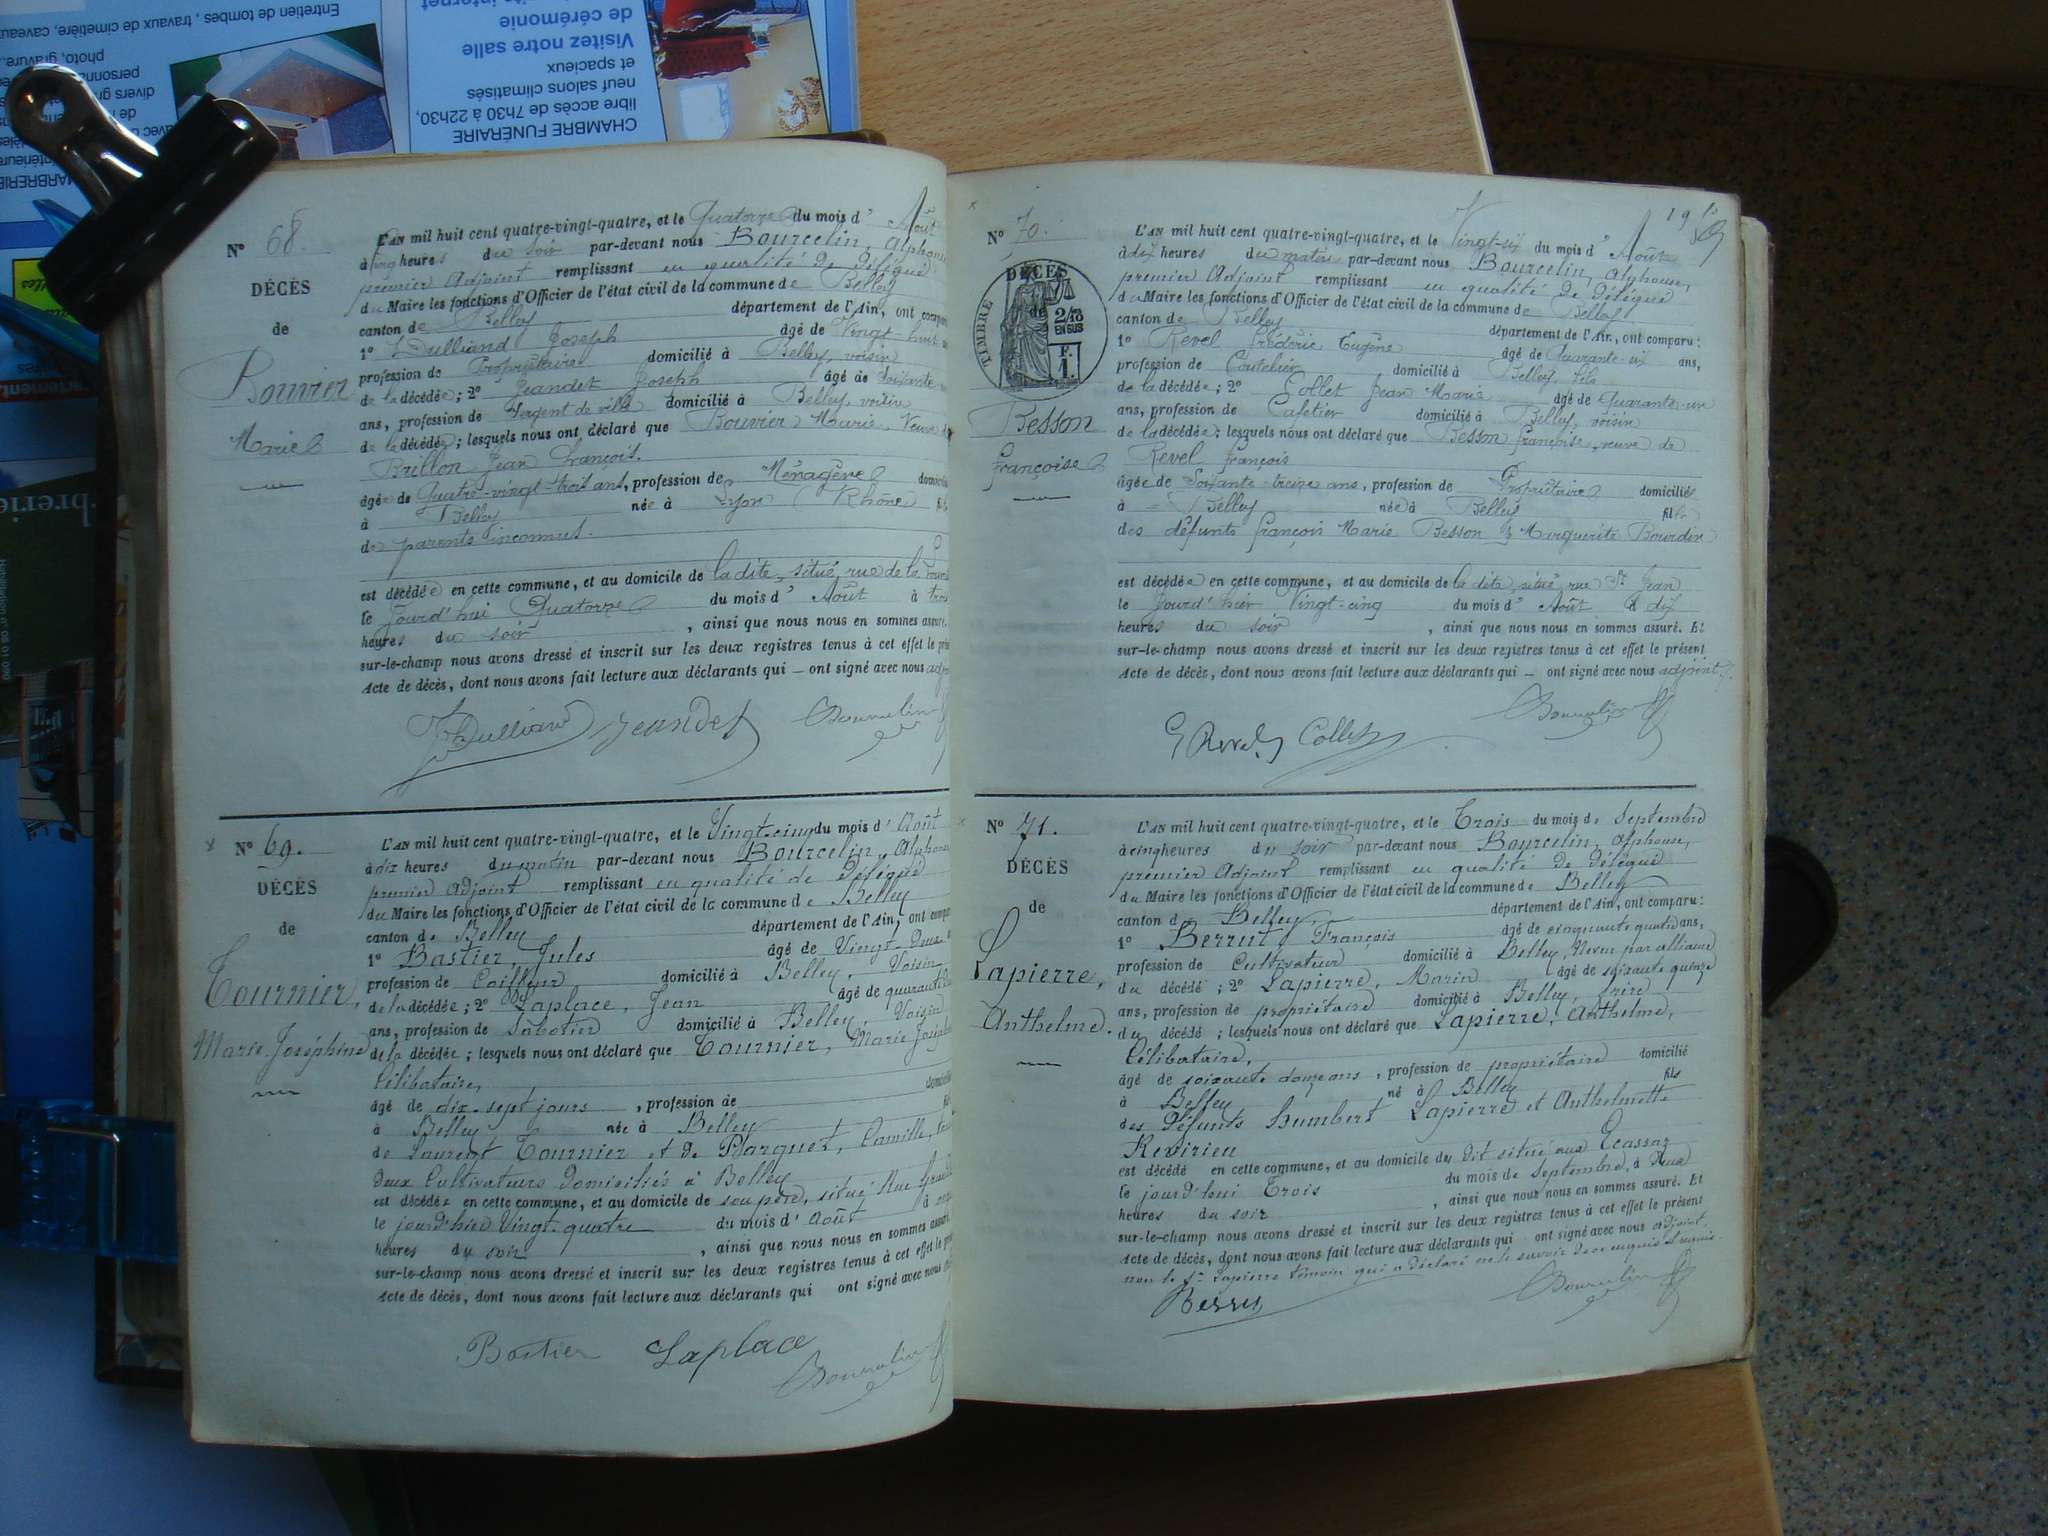 N° 68.
DÉCÈS
de
Bouvier
Marie
L'AN mil huit cent quatre-vingt-quatre, et le Quatorze du mois d' Août
à cinq heures du soir par-devant nous Bourcelin, Alphonse
premier Adjoint remplissant en qualité de délégué
du Maire les fonctions d'Officier de l'état civil de la commune de Belley
canton de Belley département de l'Ain, ont compa
1° Dulliand Joseph âgé de Vingt-huit
profession de Propriétaire domicilié à Belley, voisin
de la décédée; 2° Jeandet Joseph âgé de Soixante
ans, profession de Sergent de ville domicilié à Belley, voisin
de la décédée; lesquels nous ont déclaré que Bouvier Marie, Veuve de
Brillon Jean François.
âgée de Quatre-vingt-trois ans, profession de Ménagère domicili
à Belley née à Lyon (Rhône) fil
de parents inconnus.
est décédée en cette commune, et au domicile de la dite, situé, rue de la
le Jourd'hui Quatorze du mois d' Août à trois
heures du soir, ainsi que nous nous en sommes assuré.
sur-le-champ nous avons dressé et inscrit sur les deux registres tenus à cet effet le pré
Acte de décès, dont nous avons fait lecture aux déclarants qui – ont signé avec nous adj
J. Dulliand Jeandet Bourcelin
N° 69.
DÉCÈS
de
Tournier,
Marie Joséphine
L'AN mil huit cent quatre-vingt-quatre, et le Vingt-cinq du mois d' Août
à dix heures du matin par-devant nous Bourcelin, Alphonse
premier Adjoint remplissant en qualité de délégué
du Maire les fonctions d'Officier de l'état civil de la commune de Belley
canton de Belley département de l'Ain, ont compar
1° Bastier, Jules âgé de Vingt-deux
profession de Coiffeur domicilié à Belley, Voisin
de la décédée; 2° Laplace, Jean âgé de quarante
ans, profession de Sabotier domicilié à Belley, Voisin
de la décédée; lesquels nous ont déclaré que Tournier, Marie Joséph
Célibataire,
âgé de dix-sept jours, profession de domicili
à Belley née à Belley fil
de Laurent Tournier et de Parquet, Camille,
deux Cultivateurs domiciliés à Belley
est décédée en cette commune, et au domicile de son père, situé Rue
le jourd'hier Vingt-quatre du mois d' Août à
heures du soir, ainsi que nous nous en sommes assuré
sur-le-champ nous avons dressé et inscrit sur les deux registres tenus à cet effet le pré
Acte de décès, dont nous avons fait lecture aux déclarants qui ont signé avec nous
Bastier Laplace
Bourcelin
19
N° 70.
DÉCÈS
de
TIMBRE
2/10
EN SUS
F.
1.
Besson
Françoise
L'AN mil huit cent quatre-vingt-quatre, et le Vingt-six du mois d' Août
à dix heures du matin par-devant nous Bourcelin, Alphonse,
premier Adjoint remplissant en qualité de délégué
du Maire les fonctions d'Officier de l'état civil de la commune de Belley
canton de Belley département de l'Ain, ont comparu:
1° Revel Frédéric Eugène âgé de Quarante-six ans,
profession de Coutelier domicilié à Belley, fils
de la décédée; 2° Collet Jean Marie âgé de Quarante-un
ans, profession de Cafetier domicilié à Belley, voisin
de la décédée; lesquels nous ont déclaré que Besson Françoise, veuve de
Revel François
âgée de Soixante-treize ans, profession de Propriétaire domiciliée
à Belley née à Belley fille
des défunts François Marie Besson & Marguerite Bourdin
est décédée en cette commune, et au domicile de la dite, situé, rue St Jean
le Jourd'hier Vingt-cinq du mois d' Août à dix
heures du soir, ainsi que nous nous en sommes assuré. Et
sur-le-champ nous avons dressé et inscrit sur les deux registres tenus à cet effet le présent
Acte de décès, dont nous avons fait lecture aux déclarants qui – ont signé avec nous adjoint.
E Revel Collet Bourcelin
N° 71.
DÉCÈS
de
Lapierre,
Anthelme.
L'AN mil huit cent quatre-vingt-quatre, et le Trois du mois de Septembre
à cinq heures du soir par-devant nous Bourcelin, Alphonse,
premier Adjoint remplissant en qualité de délégué
du Maire les fonctions d'Officier de l'état civil de la commune de Belley
canton de Belley département de l'Ain, ont comparu:
1° Berrut, François âgé de cinquante quatre ans,
profession de Cultivateur domicilié à Belley, Neveu par alliance
du décédé; 2° Lapierre, Marin âgé de soixante quinze
ans, profession de propriétaire domicilié à Belley, frère
du décédé; lesquels nous ont déclaré que Lapierre, Anthelme,
Célibataire,
âgé de soixante douze ans, profession de propriétaire domicilié
à Belley né à Belley fils
des défunts Humbert Lapierre et Anthelmette
Revirieu
est décédé en cette commune, et au domicile du dit situé aux Ecassaz
le jourd'hui Trois du mois de Septembre, à deux
heures du soir, ainsi que nous nous en sommes assuré. Et
sur-le-champ nous avons dressé et inscrit sur les deux registres tenus à cet effet le présent
Acte de décès, dont nous avons fait lecture aux déclarants qui ont signé avec nous adjoint,
non le Sr Lapierre témoin qui a déclaré ne le savoir de ce enquis et requis.
Berrut Bourcelin
Entretien de tombes, travaux de cimetière, caveaux
photo, gravure
CHAMBRE FUNÉRAIRE
libre accès de 7h30 à 22h30,
neuf salons climatisés
et spacieux
Visitez notre salle
de cérémonie
internet